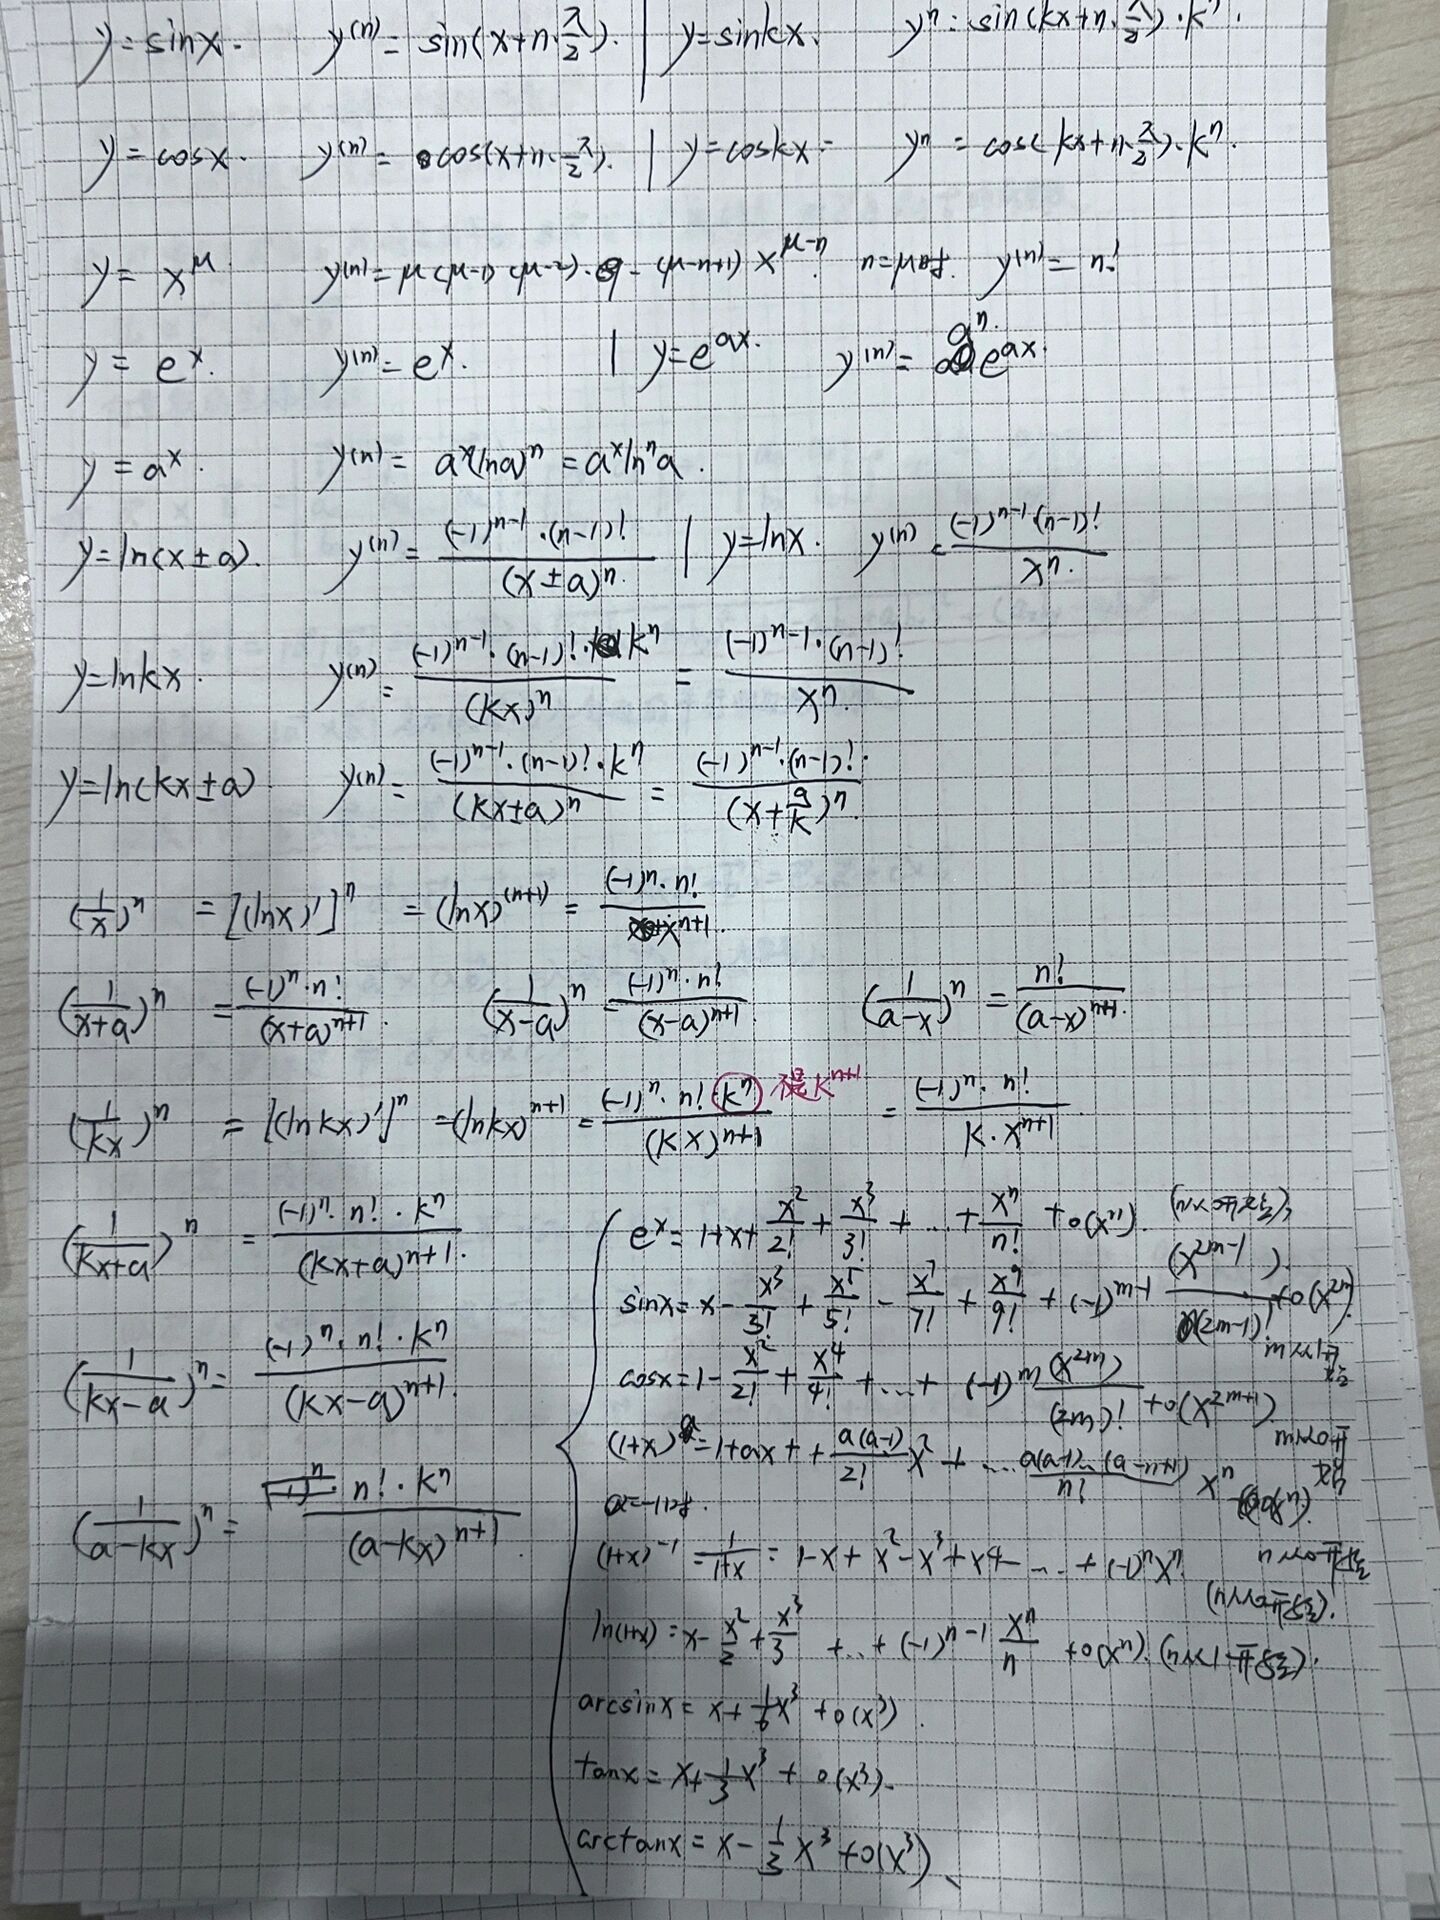 y=sinx. y⁽ⁿ⁾= sin(x+n·π/2). | y=sinkx. yⁿ = sin(kx+n·π/2)·kⁿ.
y=cosx. y⁽ⁿ⁾= cos(x+n·π/2). | y=coskx. yⁿ = cos(kx+n·π/2)·kⁿ.
y= x^μ. y⁽ⁿ⁾=μ(μ-1)(μ-2)·…(μ-n+1) x^(μ-n). n=μ时. y⁽ⁿ⁾= n!
y= eˣ. y⁽ⁿ⁾= eˣ. | y=e^(ax). y⁽ⁿ⁾= aⁿe^(ax).
y=aˣ. y⁽ⁿ⁾= aˣ(lna)ⁿ = aˣlnⁿa.
y=ln(x±a). y⁽ⁿ⁾= (-1)ⁿ⁻¹·(n-1)!/(x±a)ⁿ. | y=lnx. y⁽ⁿ⁾=(-1)ⁿ⁻¹·(n-1)!/xⁿ.
y=lnkx. y⁽ⁿ⁾= (-1)ⁿ⁻¹·(n-1)!·kⁿ/(kx)ⁿ = (-1)ⁿ⁻¹·(n-1)!/xⁿ.
y=ln(kx±a) y⁽ⁿ⁾= (-1)ⁿ⁻¹·(n-1)!·kⁿ/(kx±a)ⁿ = (-1)ⁿ⁻¹·(n-1)!/(x+a/k)ⁿ.
(1/x)ⁿ = [(lnx)']ⁿ = (lnx)⁽ⁿ⁺¹⁾ = (-1)ⁿ·n!/xⁿ⁺¹.
(1/(x+a))ⁿ = (-1)ⁿ·n!/(x+a)ⁿ⁺¹. (1/(x-a))ⁿ = (-1)ⁿ·n!/(x-a)ⁿ⁺¹. (1/(a-x))ⁿ = n!/(a-x)ⁿ⁺¹.
(1/kx)ⁿ = [(lnkx)']ⁿ =(lnkx)ⁿ⁺¹ = (-1)ⁿ·n! kⁿ/(kx)ⁿ⁺¹ 不是kⁿ⁺¹ = (-1)ⁿ·n!/(k·xⁿ⁺¹).
(1/(kx+a))ⁿ = (-1)ⁿ·n!·kⁿ/(kx+a)ⁿ⁺¹.
(1/(kx-a))ⁿ= (-1)ⁿ·n!·kⁿ/(kx-a)ⁿ⁺¹.
(1/(a-kx))ⁿ= n!·kⁿ/(a-kx)ⁿ⁺¹.
eˣ= 1+x+x²/2!+x³/3!+…+xⁿ/n! +o(xⁿ). (n从0开始);
sinx= x-x³/3!+x⁵/5!-x⁷/7!+x⁹/9!+(-1)ᵐ⁻¹ (x²ᵐ⁻¹)/(2m-1)! +o(x²ᵐ)
m从1开始
cosx=1-x²/2!+x⁴/4!+…+(-1)ᵐ (x²ᵐ)/(2m)! +o(x²ᵐ⁺¹)
m从0开始
(1+x)ᵃ=1+ax++a(a-1)/2! x²+…a(a-1)…(a-n+1)/n! xⁿ+o(xⁿ).
n从0开始
a=-1时.
(1+x)⁻¹=1/(1+x)=1-x+x²-x³+x4-…+(-1)ⁿxⁿ
(n从0开始).
ln(1+x)=x-x²/2+x³/3+…+(-1)ⁿ⁻¹ xⁿ/n +o(xⁿ). (n从1开始).
arcsinx= x+1/6x³+o(x³).
tanx= x+1/3x³+o(x³).
arctanx = x-1/3x³+o(x³).